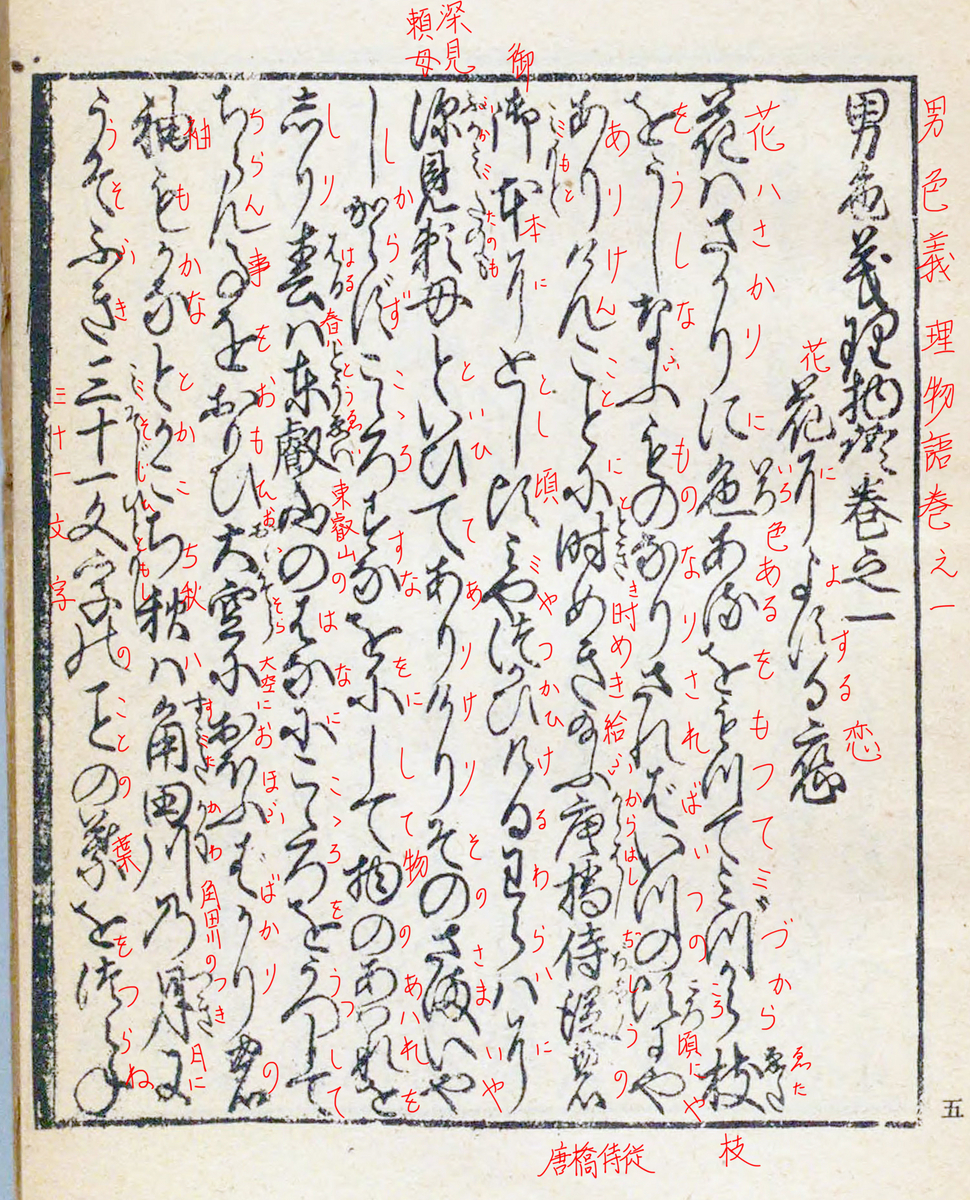 男色義理物語巻之一
花によする恋
花ハさかりに色あるをもつてミづから枝
をうしなふものなりさればいつの頃にや
ありけんことに時めき給ふ唐橋侍従の
御本にとし頃ミやつかひけるわらハに
深見頼母といひてありけりそのさまいや
しからずこゝろすなをにして物のあハれを
しり春ハ東叡山のはなにこゝろをうつして
ちらん事をおもひ大空におほふばかりの
袖もかなとかこち秋ハ角田川の月に
うそぶき三十一文字のことの葉をつらね
五